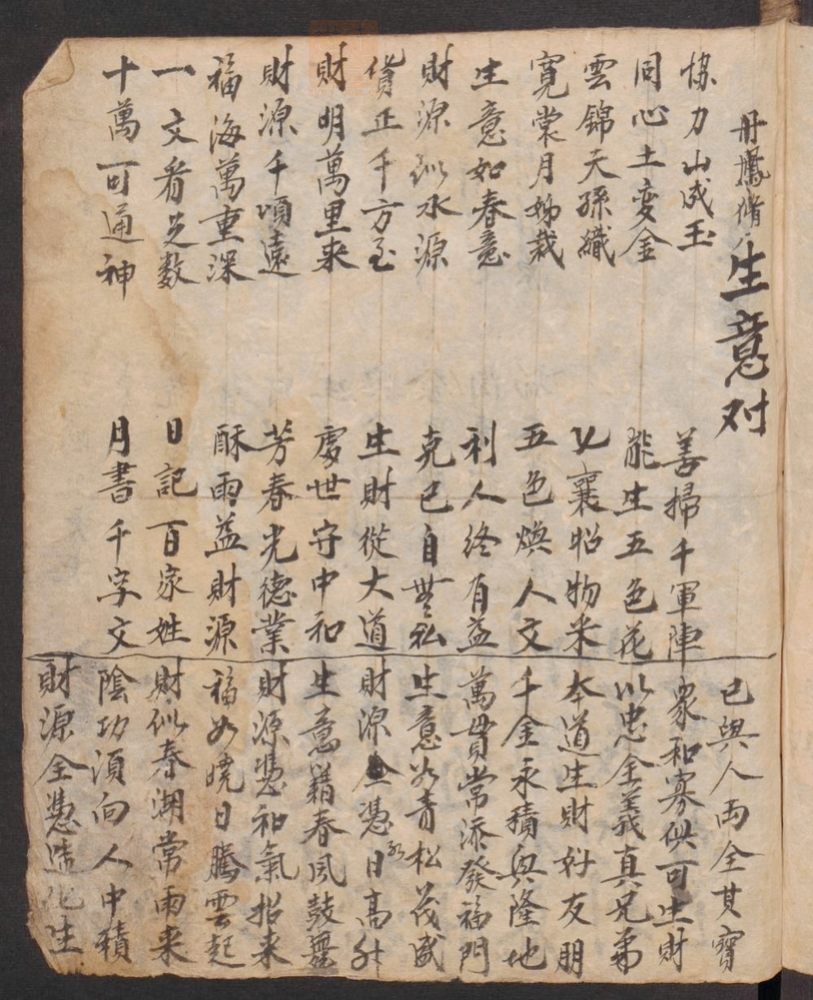 丹鳳脩
生意对
協力山成玉
同心土变金
雲錦天孫織
寛裳月姊裁
生意如春意
財源似水源
貨正千方至
財明萬里来
財源千頃遠
福海萬重深
一文看是数
十萬可通神
善掃千軍陣
能生五色花
乂襄昭物米
五色煥人文
利人终有益
克己自無私
生財從大道
處世守中和
芳春光德業
酥雨益財源
日記百家姓
月書千字文
已與人両全其寶
家和寡供可生財
以忠全義真兄弟
本道生財好友朋
千金永積興隆地
萬貫常添發福門
生意如青松茂盛
財源全憑日高升
生意藉春风鼓舞
財源憑和氣招来
福如曉日騰雲起
財似春潮常雨来
陰功須向人中積
財源全憑造化生